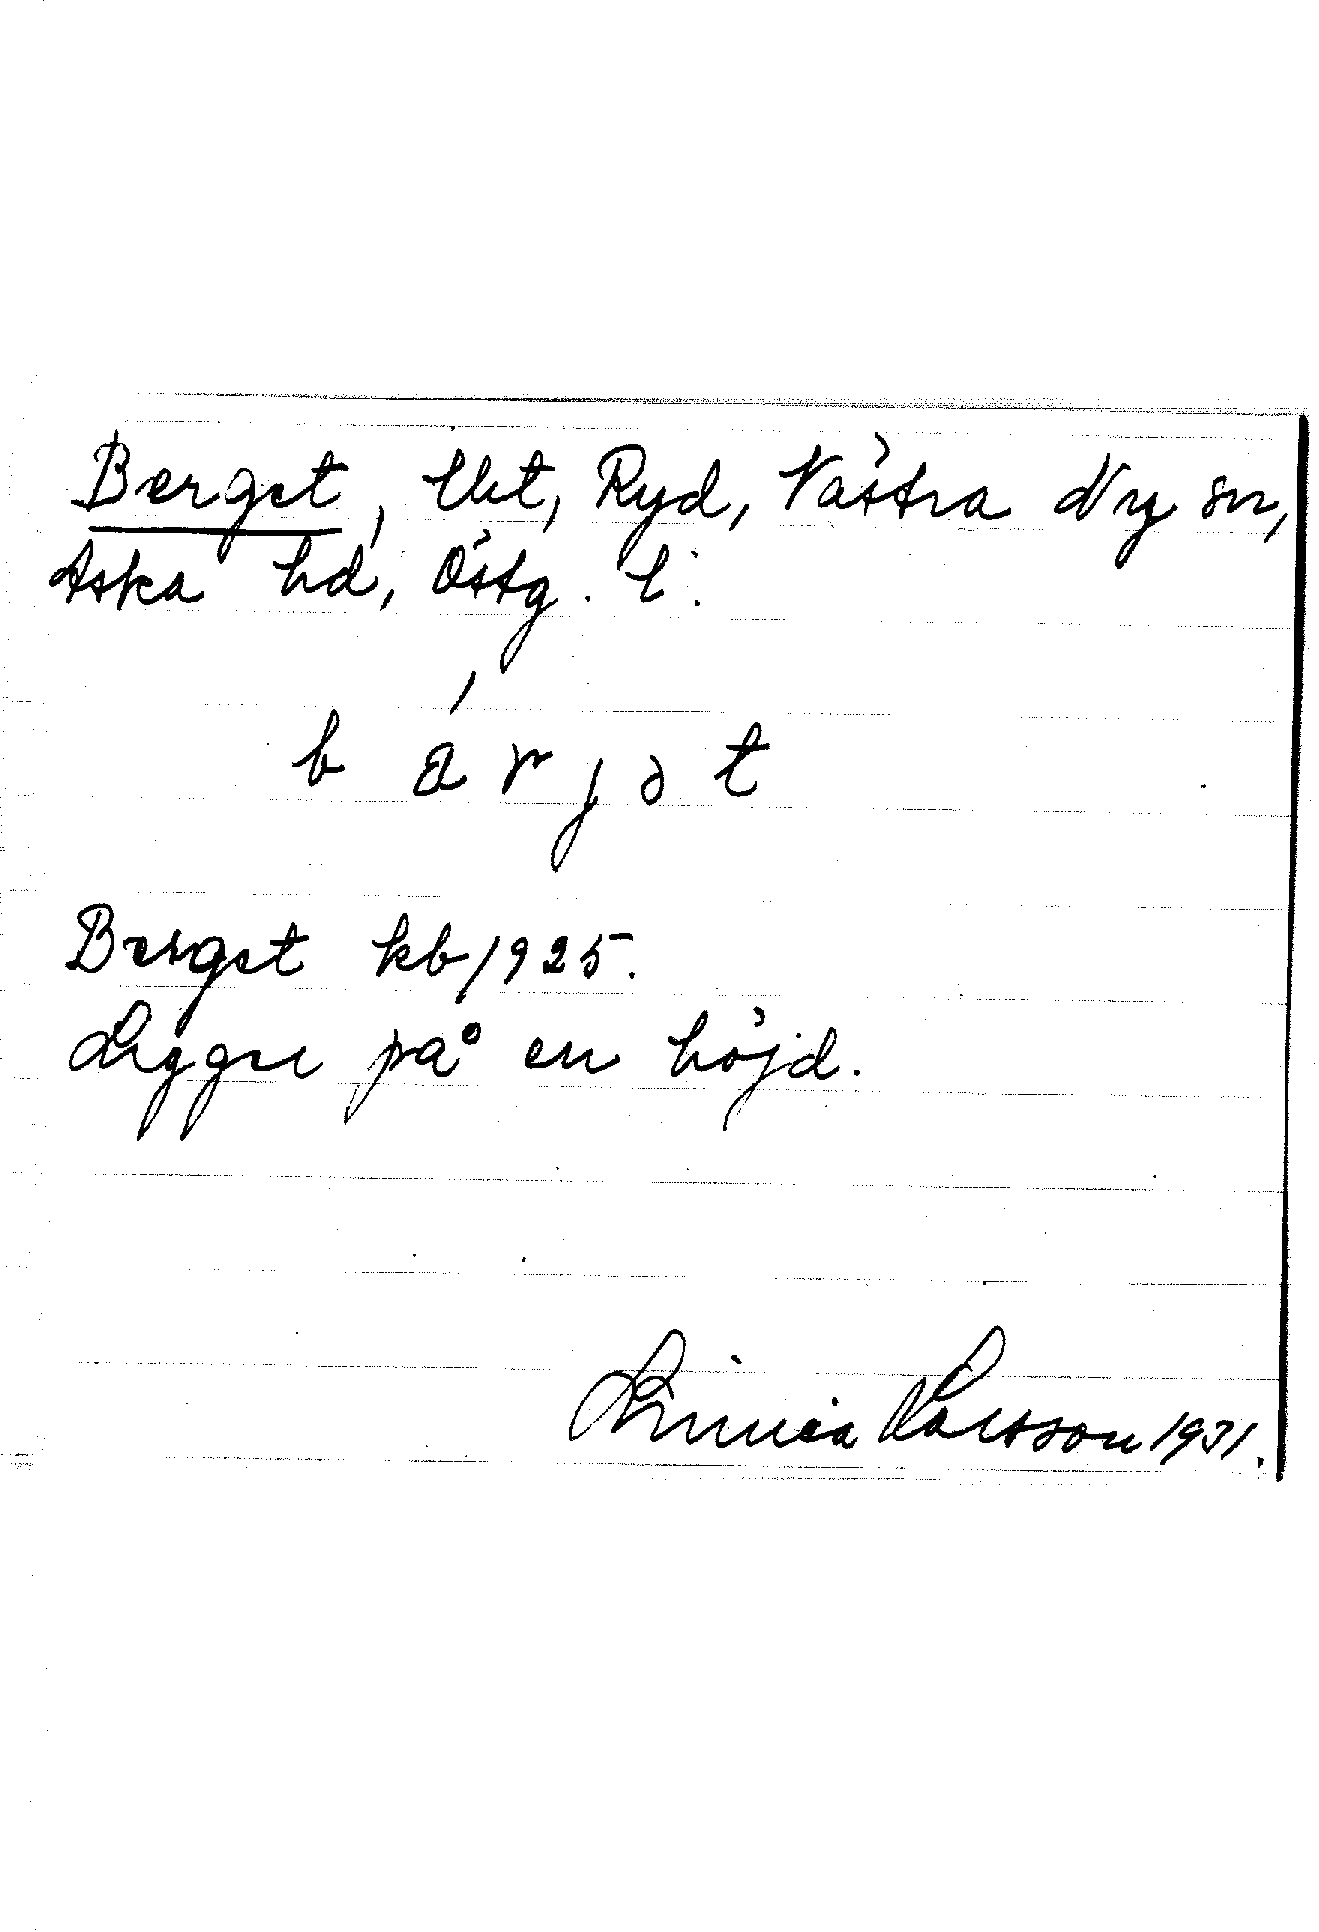 Berget, lht, Ryd, Västra Ny sn,
Aska hd, Östg. l.
b a r j ə t
Berget kb 1925.
Ligger på en höjd.
Linnéa Larsson 1931.